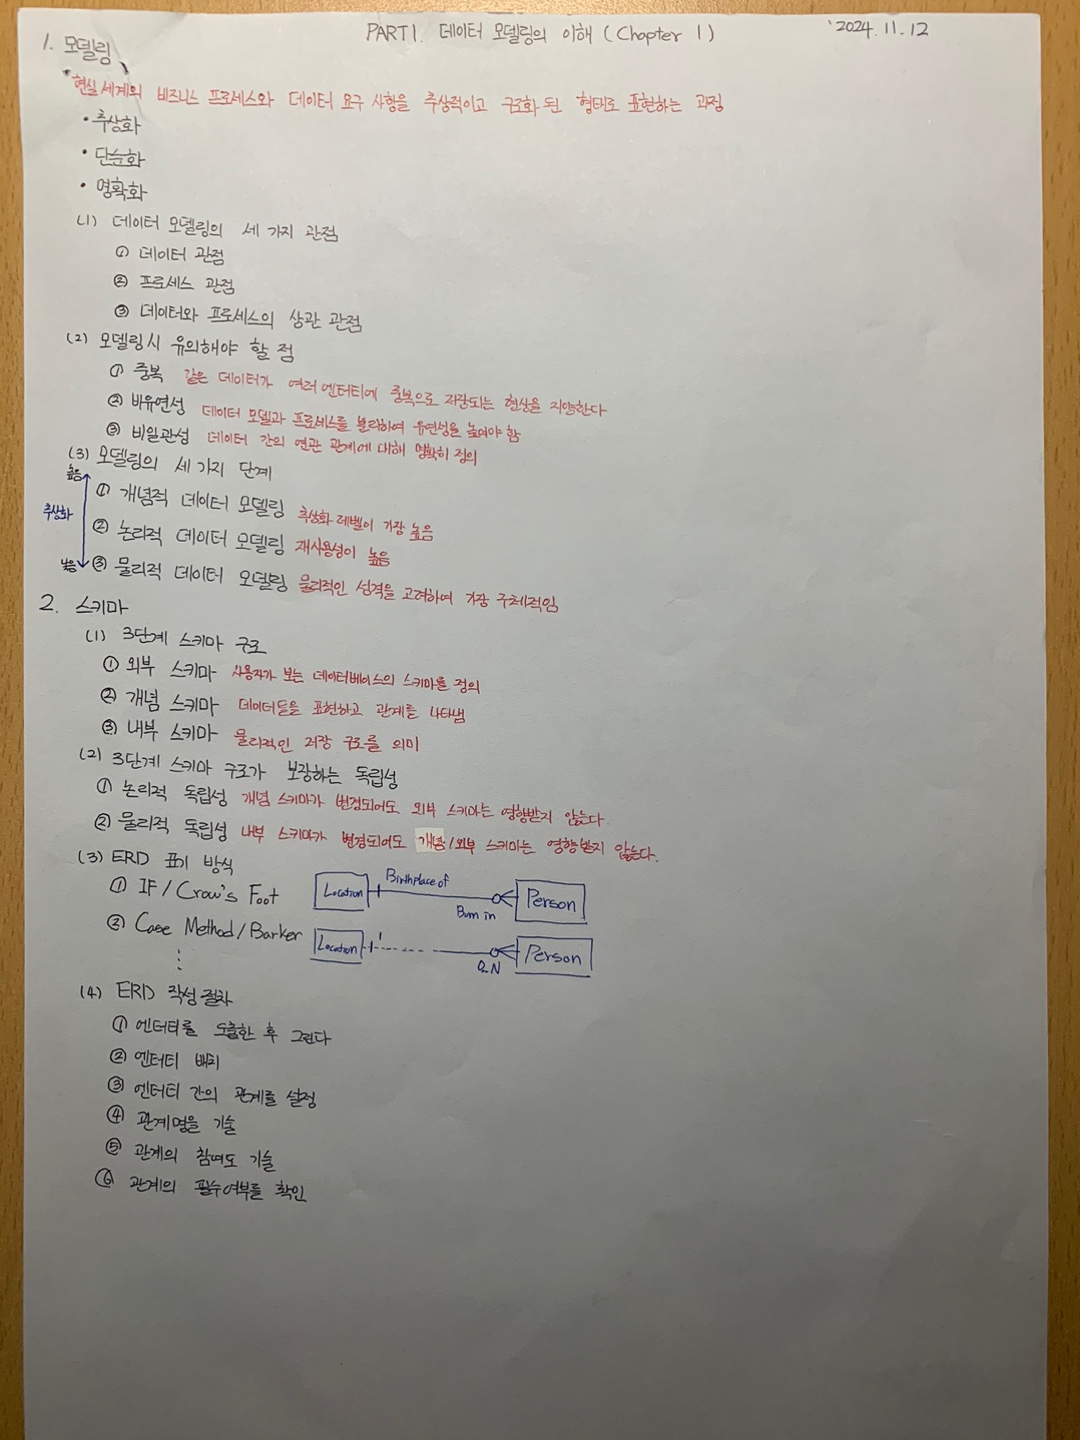 PART1. 데이터 모델링의 이해 (Chapter 1)
'2024. 11. 12
1. 모델링
현실 세계의 비즈니스 프로세스와 데이터 요구 사항을 추상적이고 구조화 된 형태로 표현하는 과정
• 추상화
• 단순화
• 명확화
(1) 데이터 모델링의 세 가지 관점
① 데이터 관점
② 프로세스 관점
③ 데이터와 프로세스의 상관 관점
(2) 모델링시 유의해야 할 점
① 중복 같은 데이터가 여러 엔터티에 중복으로 저장되는 현상을 지양한다
② 비유연성 데이터 모델과 프로세스를 분리하여 유연성을 높여야 함
③ 비일관성 데이터 간의 연관 관계에 대해 명확히 정의
(3) 모델링의 세 가지 단계
높음
① 개념적 데이터 모델링 추상화 레벨이 가장 높음
추상화
② 논리적 데이터 모델링 재사용성이 높음
낮음
③ 물리적 데이터 모델링 물리적인 성격을 고려하여 가장 구체적임
2. 스키마
(1) 3단계 스키마 구조
① 외부 스키마 사용자가 보는 데이터베이스의 스키마를 정의
② 개념 스키마 데이터들을 표현하고 관계를 나타냄
③ 내부 스키마 물리적인 저장 구조를 의미
(2) 3단계 스키마 구조가 보장하는 독립성
① 논리적 독립성 개념 스키마가 변경되어도 외부 스키마는 영향받지 않는다.
② 물리적 독립성 내부 스키마가 변경되어도 개념/외부 스키마는 영향받지 않는다.
(3) ERD 표기 방식
① IF / Crow's Foot
Location Birthplace of Person
Born in
② Case Method / Barker
Location 1 Person
0..N
⋮
(4) ERD 작성 절차
① 엔터티를 도출한 후 그린다
② 엔터티 배치
③ 엔터티 간의 관계를 설정
④ 관계명을 기술
⑤ 관계의 참여도 기술
⑥ 관계의 필수여부를 확인